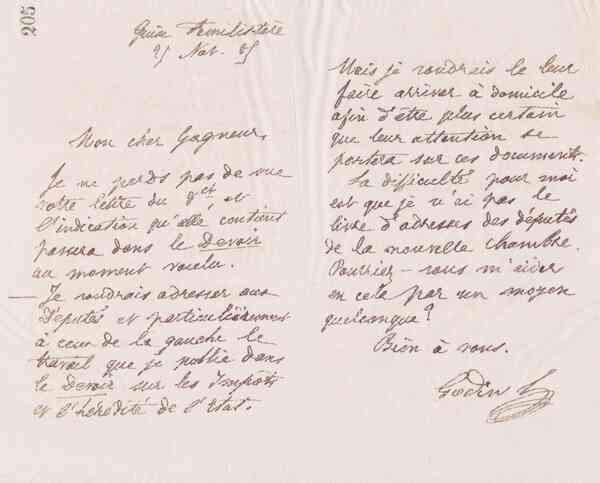 205
Guise Familistère
25 Nov. 85
Mon cher Gagneur,
Je ne perds pas de vue
votre lettre du et
l'indication qu'elle contient
passera dans le Devoir
au moment voulu.
Je voudrais adresser aux
Députés et particulièrement
à ceux de la gauche le
travail que je publie dans
le Devoir sur les Impôts
et l'hérédité de l'Etat.
Mais je voudrais le leur
faire arriver à domicile
afin d'être plus certain
que leur attention se
portera sur ces documents.
La difficulté pour moi
est que je n'ai pas le
livre d'adresses des députés
de la nouvelle chambre.
Pourriez-vous m'aider
en cela par un moyen
quelconque ?
Bien à vous.
Godin